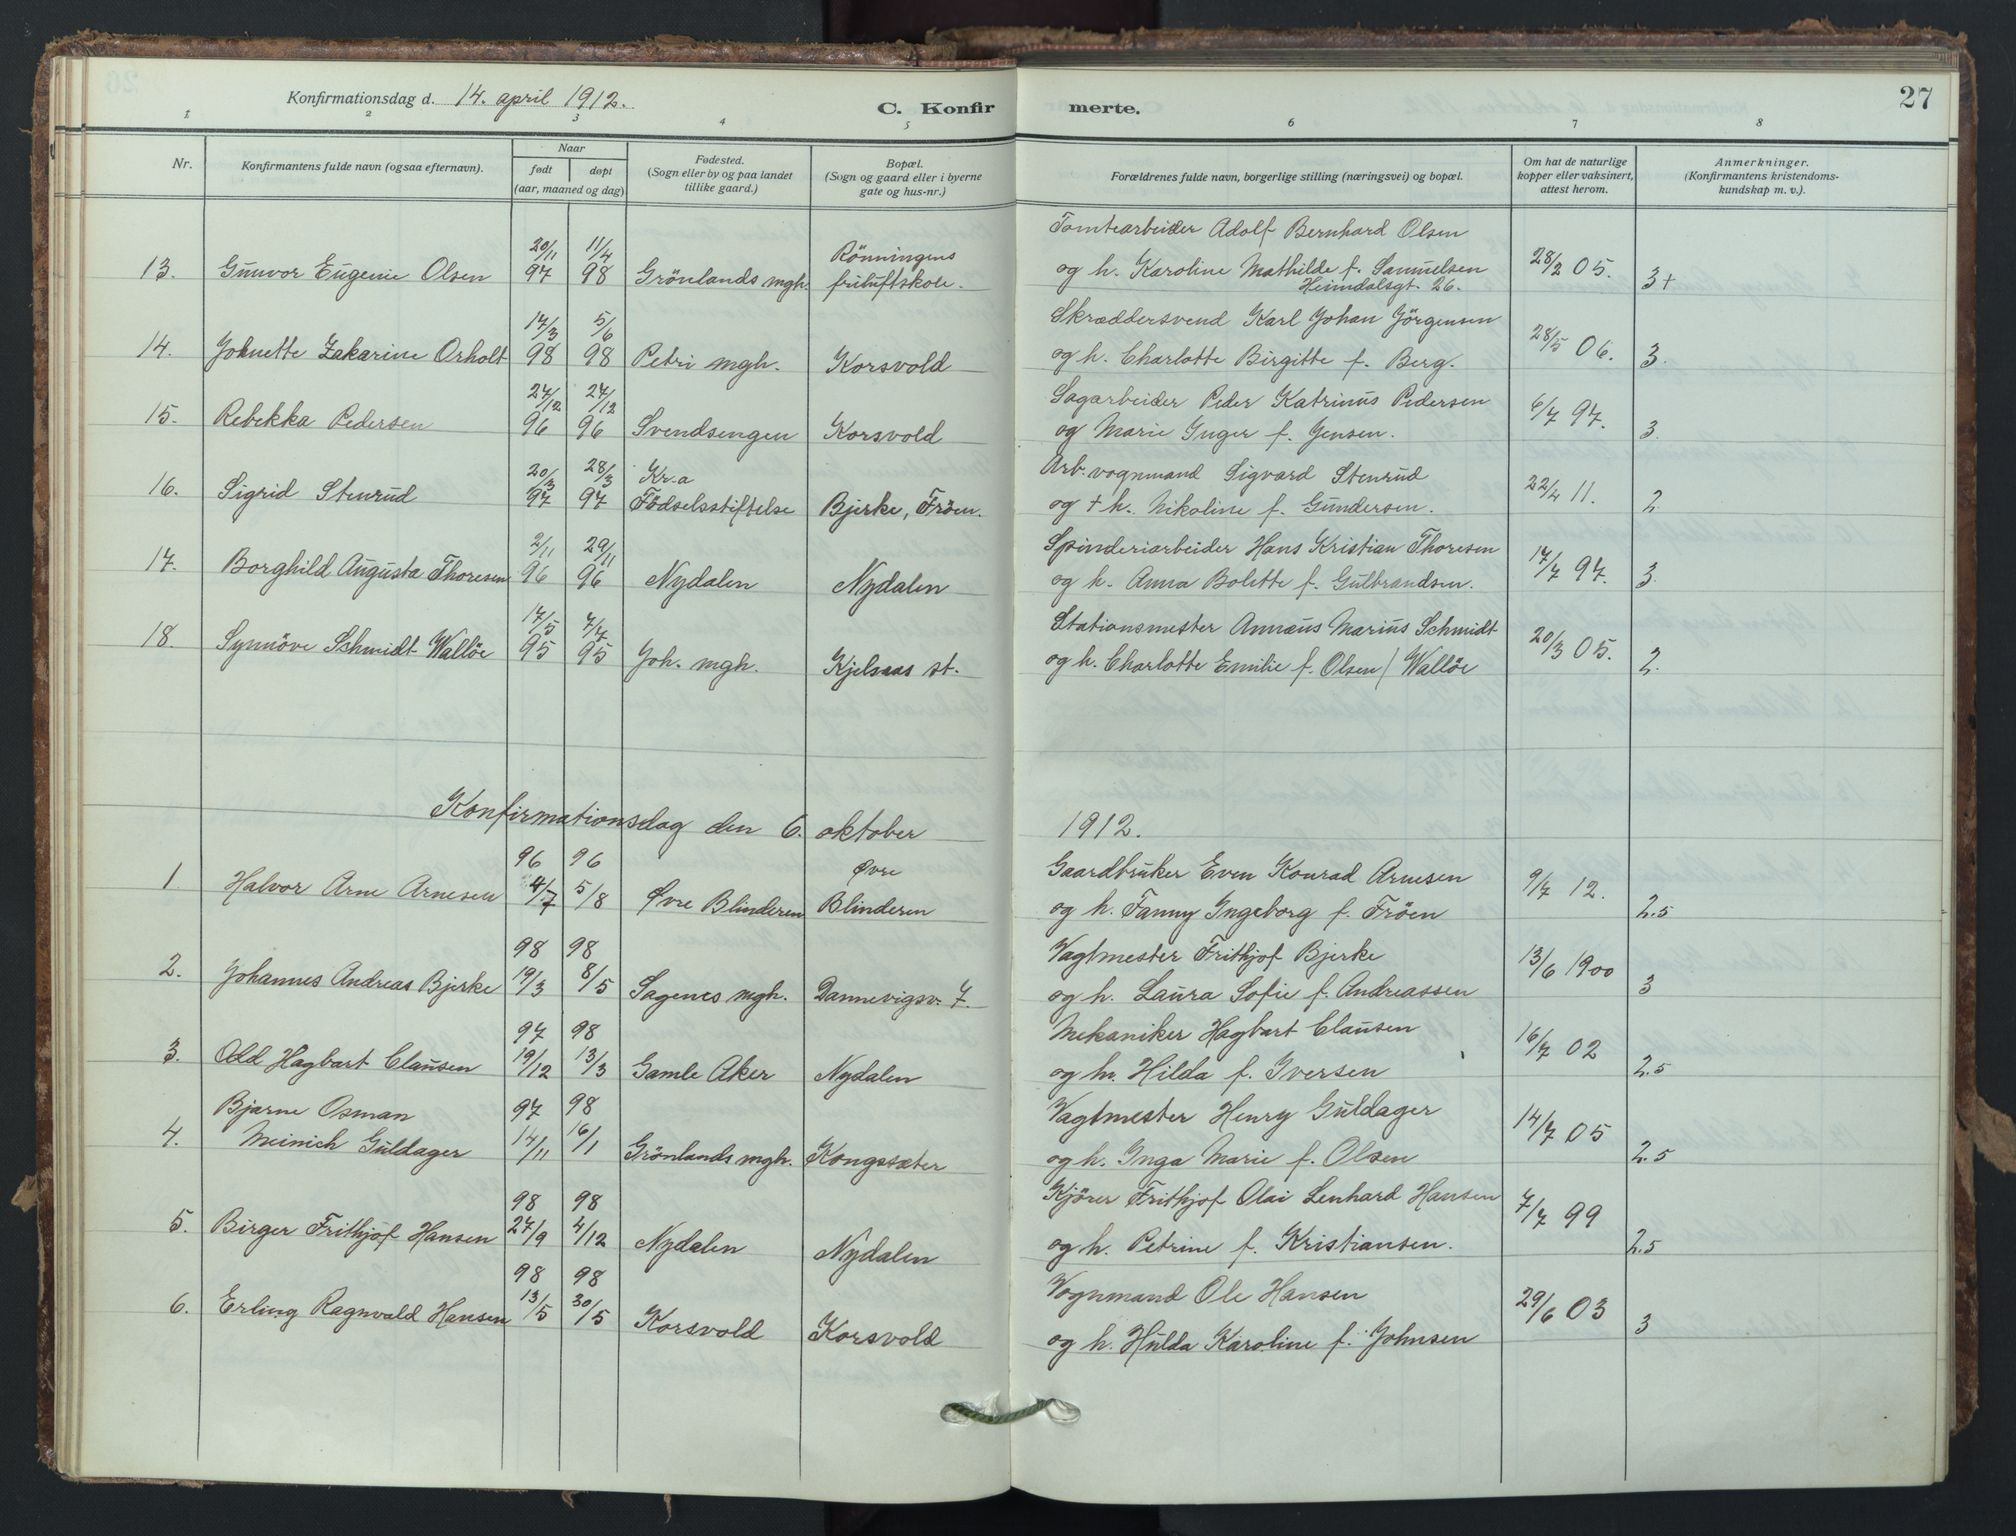 27
Konfirmationsdag d. 14. april 1912.
C. Konfirmerte.
1 2 3 4 5 6 7 8
Nr.
Konfirmantens fulde navn (ogsaa efternavn).
Naar
født døpt
(aar, maaned og dag)
Fødested.
(Sogn eller by og paa landet
tillike gaard.)
Bopæl.
(Sogn og gaard eller i byerne
gate og hus-nr.)
Forældrenes fulde navn, borgerlige stilling (næringsvei) og bopæl.
Om hat de naturlige
kopper eller vaksinert,
attest herom.
Anmerkninger.
(Konfirmantens kristendoms-
kundskap m. v.).
20/11 11/4 Rönningens Tomtearbeider Adolf Bernhard Olsen
13. Gunvor Eugenie Olsen 97 98 Grönlands mgh. friluftskole. og h. Karoline Mathilde f. Samuelsen 28/2 05. 3+
Heimdalsgt. 26.
17/3 5/6 Skræddersvend Karl Johan Jörgensen
14. Johnette Zakarine Orholt 98 98 Petri mgh. Korsvold og h. Charlotte Birgitte f. Berg. 28/5 06. 3.
27/12 27/12 Sagarbeider Peder Katrinus Pedersen
15. Rebekka Pedersen 96 96 Svendsengen Korsvold og Marie Inger f. Jensen. 6/7 97. 3.
20/3 28/3 Kr.a Arb. vognmand Sigvard Stenrud
16. Sigrid Stenrud 97 97 Födselsstiftelse Bjerke, Fröen. og + h. Nikoline f. Gundersen. 22/4 11. 2.
2/11 29/11 Spinderiarbeider Hans Kristian Thoresen
17. Borghild Augusta Thoresen 96 96 Nydalen Nydalen og h. Anna Bolette f. Gulbrandsen. 17/7 97. 3.
17/5 7/7 Stationsmester Annæus Marius Schmidt
18. Synnöve Schmidt Wallöe 95 95 Joh. mgh. Kjelsaas st. og h. Charlotte Emilie f. Olsen / Wallöe 20/3 05. 2.
Konfirmationsdag den 6. oktober 1912.
96 96 Øvre Gaardbruker Even Konrad Arnesen
1. Halvor Arne Arnesen 4/7 5/8 Øvre Blinderen Blinderen og h. Fanny Ingeborg f. Fröen 9/7 12. 2.5
98 98 Vagtmester Frithjof Bjerke
2. Johannes Andreas Bjerke 19/3 8/5 Sagenes mgh. Dannevigsv. 7. og h. Laura Sofie f. Andreassen 13/6 1900 3
97 98 Mekaniker Hagbart Clausen
3. Odd Hagbart Clausen 19/12 13/3 Gamle Aker Nydalen og h. Hilda f. Iversen 16/7 02 2.5
Bjarne Osman 97 98 Vagtmester Henry Guldager
4. Meinich Guldager 14/11 16/1 Grönlands mgh. Kongssæter og h. Inga Marie f. Olsen 14/7 05 2.5
98 98 Kjörer Frithjof Olai Lenhard Hansen
5. Birger Frithjof Hansen 27/9 4/12 Nydalen Nydalen og h. Petrine f. Kristiansen. 7/7 99 2.5
98 98 Vognmand Ole Hansen
6. Erling Ragnvald Hansen 13/5 30/5 Korsvold Korsvold og h. Hulda Karoline f. Johnsen 29/6 03 3